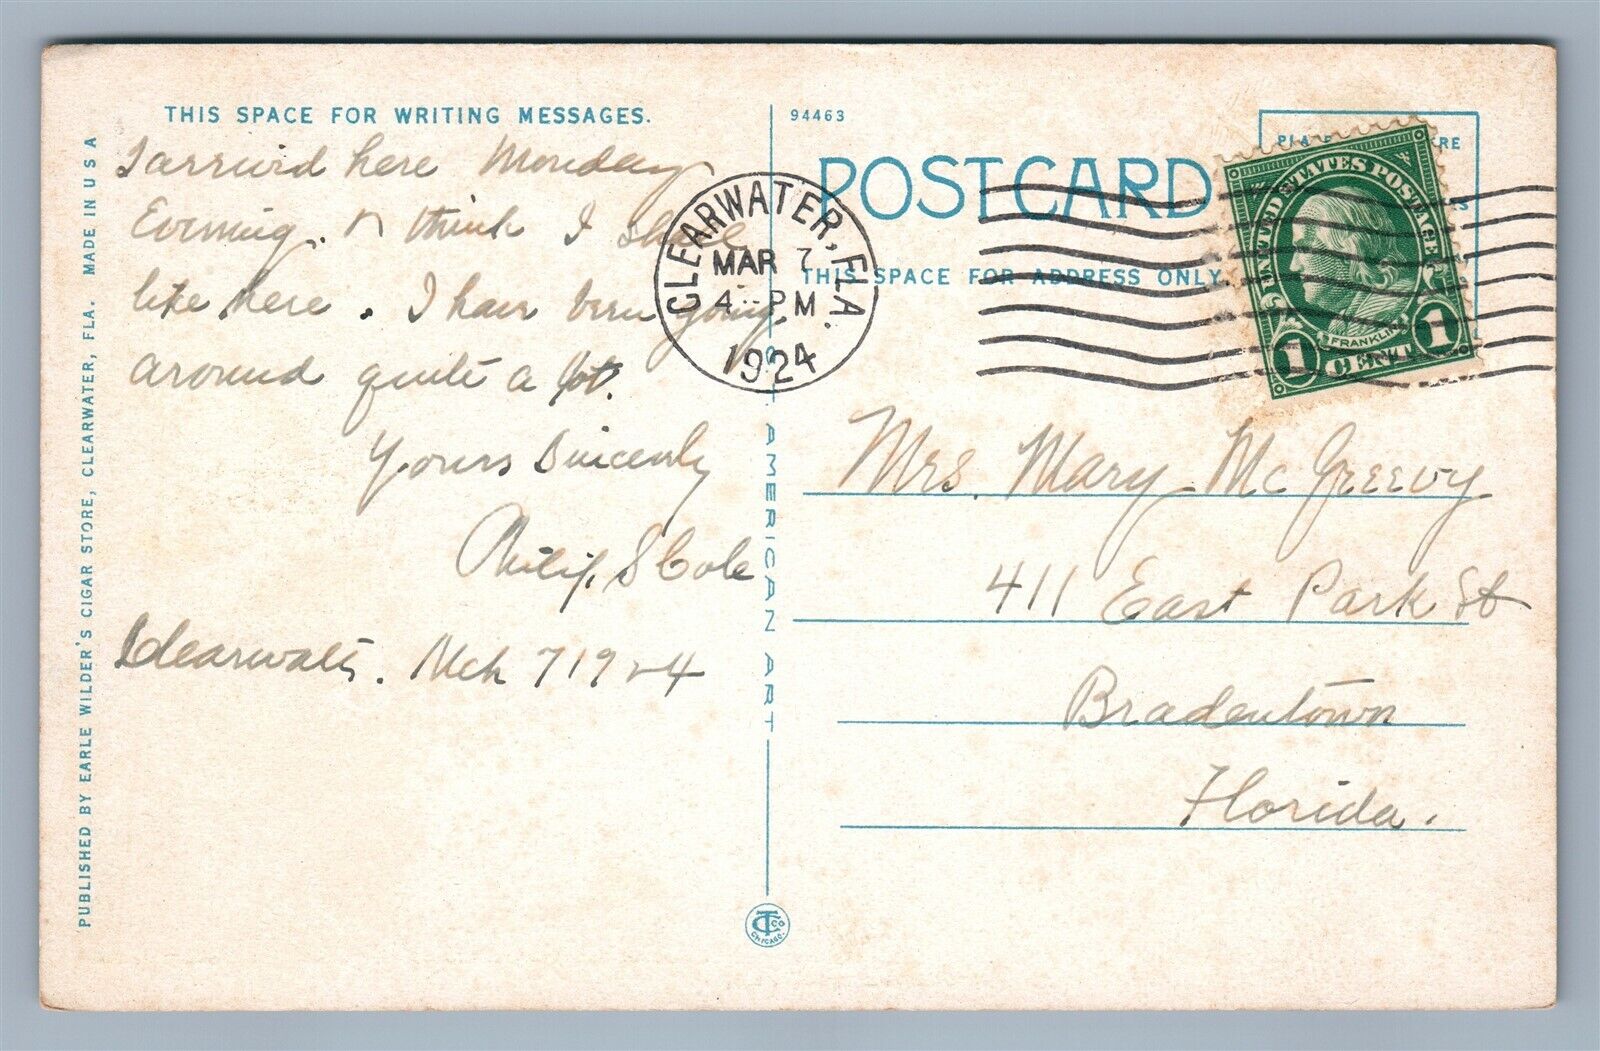 THIS SPACE FOR WRITING MESSAGES.
I arrived here Monday
Evening. I think I shall
like here. I have been going
around quite a lot.
Yours Sincerely
Philip S Cole
Clearwater. Mch 7 1924
PUBLISHED BY EARLE WILDER'S CIGAR STORE, CLEARWATER, FLA. MADE IN U S A
AMERICAN ART
CT Co
CHICAGO.
94463
POST CARD
THIS SPACE FOR ADDRESS ONLY.
CLEARWATER, FLA.
MAR 7
4 - PM
1924
UNITED STATES POSTAGE
FRANKLIN
1 CENT 1
Mrs. Mary McGreevy
411 East Park St
Bradentown
Florida.